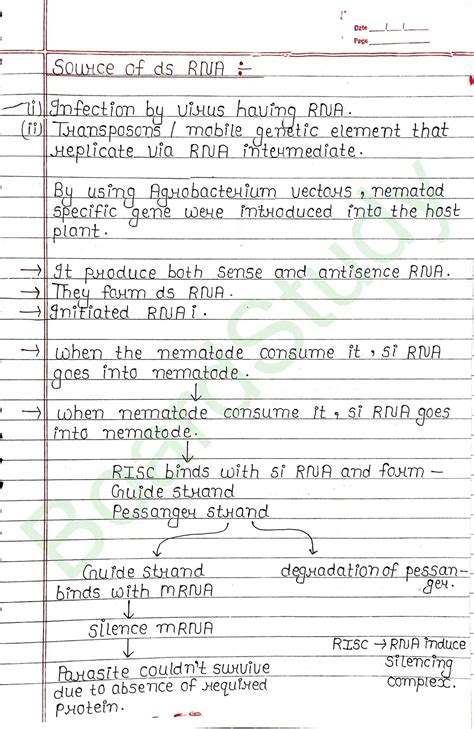 Date / /
Page
Source of ds RNA :-
(i) Infection by virus having RNA.
(ii) Transposons / mobile genetic element that
replicate via RNA intermediate.
By using Agrobacterium vectors, nematod
specific gene were introduced into the host
plant.
→ It produce both sense and antisence RNA.
→ They form ds RNA.
→ Initiated RNA i.
→ when the nematode consume it, si RNA
goes into nematode.
↓
→ when nematode consume it, si RNA goes
into nematode.
↓
RISC binds with si RNA and form —
Guide strand
Pessanger strand
Guide strand
binds with mRNA
degradation of pessan-
ger.
↓
silence mRNA
↓
RISC → RNA induce
silencing
complex.
Parasite couldn't survive
due to absence of required
protein.
BoardStudy